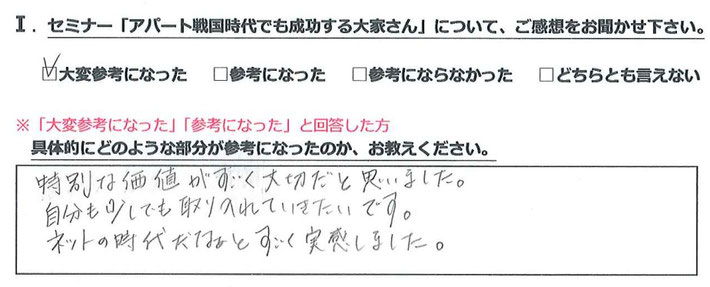 I．セミナー「アパート戦国時代でも成功する大家さん」について、ご感想をお聞かせ下さい。
☑大変参考になった □参考になった □参考にならなかった □どちらとも言えない
※「大変参考になった」「参考になった」と回答した方
具体的にどのような部分が参考になったのか、お教えください。
特別な価値がすごく大切だと思いました。
自分も少しでも取り入れていきたいです。
ネットの時代だなぁとすごく実感しました。